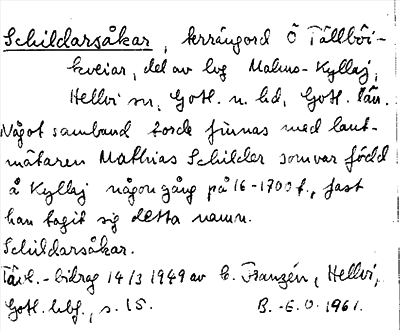 Schildarsåkar, terrängord Ö Tällböi-
kveiar, del av bg Malms-Kyllaj,
Hellvi sn, Gotl. n. hd, Gotl. län.
Något samband torde finnas med lant-
mätaren Mathias Schilder som var född
å Kyllaj någon gång på 16-1700 t., fast
han tagit sig detta namn.
Schildarsåkar.
Tävl.-bidrag 14/3 1949 av E. Franzén, Hellvi,
Gotl. , s. 15. B.-E.O. 1961.